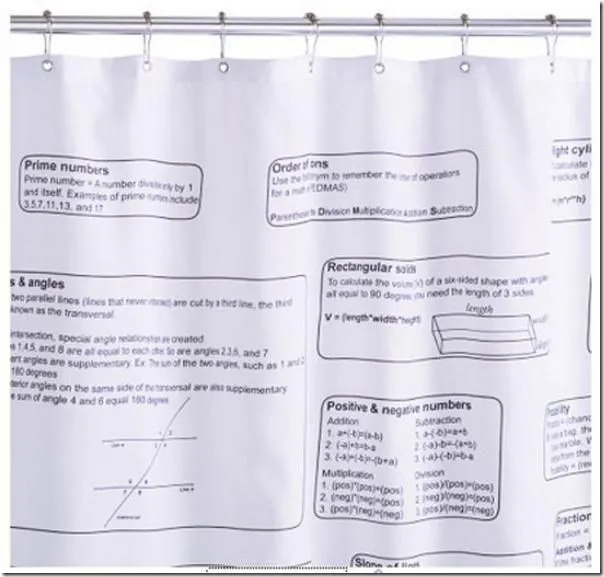 Prime numbers
Prime number = A number divisible by 1
and itself. Examples of prime numbers include
3,5,7,11,13, and 17
Order of ons
Use the to remember the of operations
for a (PEDMAS)
Parenthesis Division Multiplication Addition Subtraction
ight cyli
calculate
radius of
s & angles
two parallel lines (lines that never intersect) are cut by a third line, the third
known as the transversal.
intersection, special angle relationships are created
s 1,4,5, and 8 are all equal to each other. So are angles 2,3,6, and 7
ent angles are supplementary. Ex: The sum of the two angles, such as 1 and 2
180 degrees
terior angles on the same side of the transversal are also supplementary.
e sum of angle 4 and 6 equal 180 degrees
1 2
3 4
Line
5 6
7 8
Line
transversal
Rectangular solids
To calculate the volume (V) of a six-sided shape with angle
all equal to 90 degree, you need the length of 3 sides
V = (length*width*height)
length
width
Positive & negative numbers
Addition
1. a+(-b)=(a-b)
2. (-a)+b=b-a
3. (-a)+(-b)=-(b+a)
Subtraction
1. a-(-b)=a+b
2. (-a)-b=-(a+b)
3. (-a)-(-b)=b-a
Multiplication
1. (pos)*(pos)=(pos)
2. (neg)*(neg)=(pos)
3. (pos)*(neg)=(neg)
Division
1. (pos)/(pos)=(pos)
2. (neg)/(neg)=(pos)
3. (pos)/(neg)=(neg)
bility
= (chanc
bag, the
marble. W
from the
Fraction
raction =
Addition &
Slope of